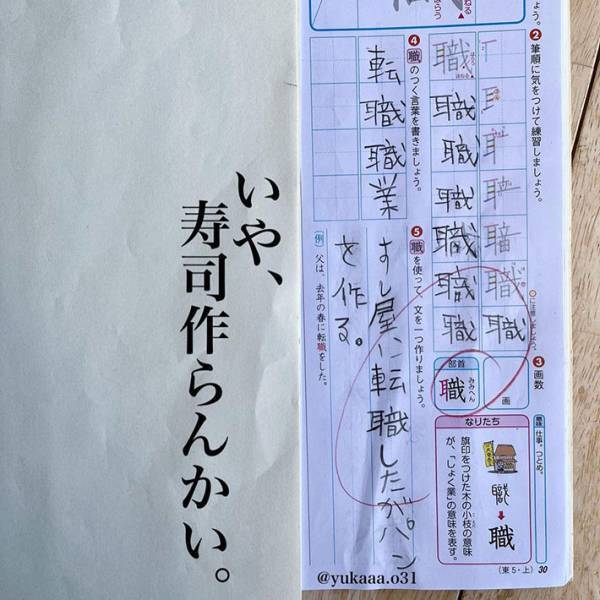 ❷筆順に気をつけて練習しましょう。
職
職職職職職職
職
❸画数
画
部首
職
みみへん
意味 仕事。つとめ。
なりたち
職
旗印をつけた木の小枝の意味
が、「しょく業」の意味を表す。
❹職のつく言葉を書きましょう。
転職
職業
❺職を使って、文を一つ作りましょう。
すし屋に転職したがパン
を作る。
(例)父は、去年の春に転職をした。
(東5・上) 30
いや、
寿司作らんかい。
@yukaaa.o31